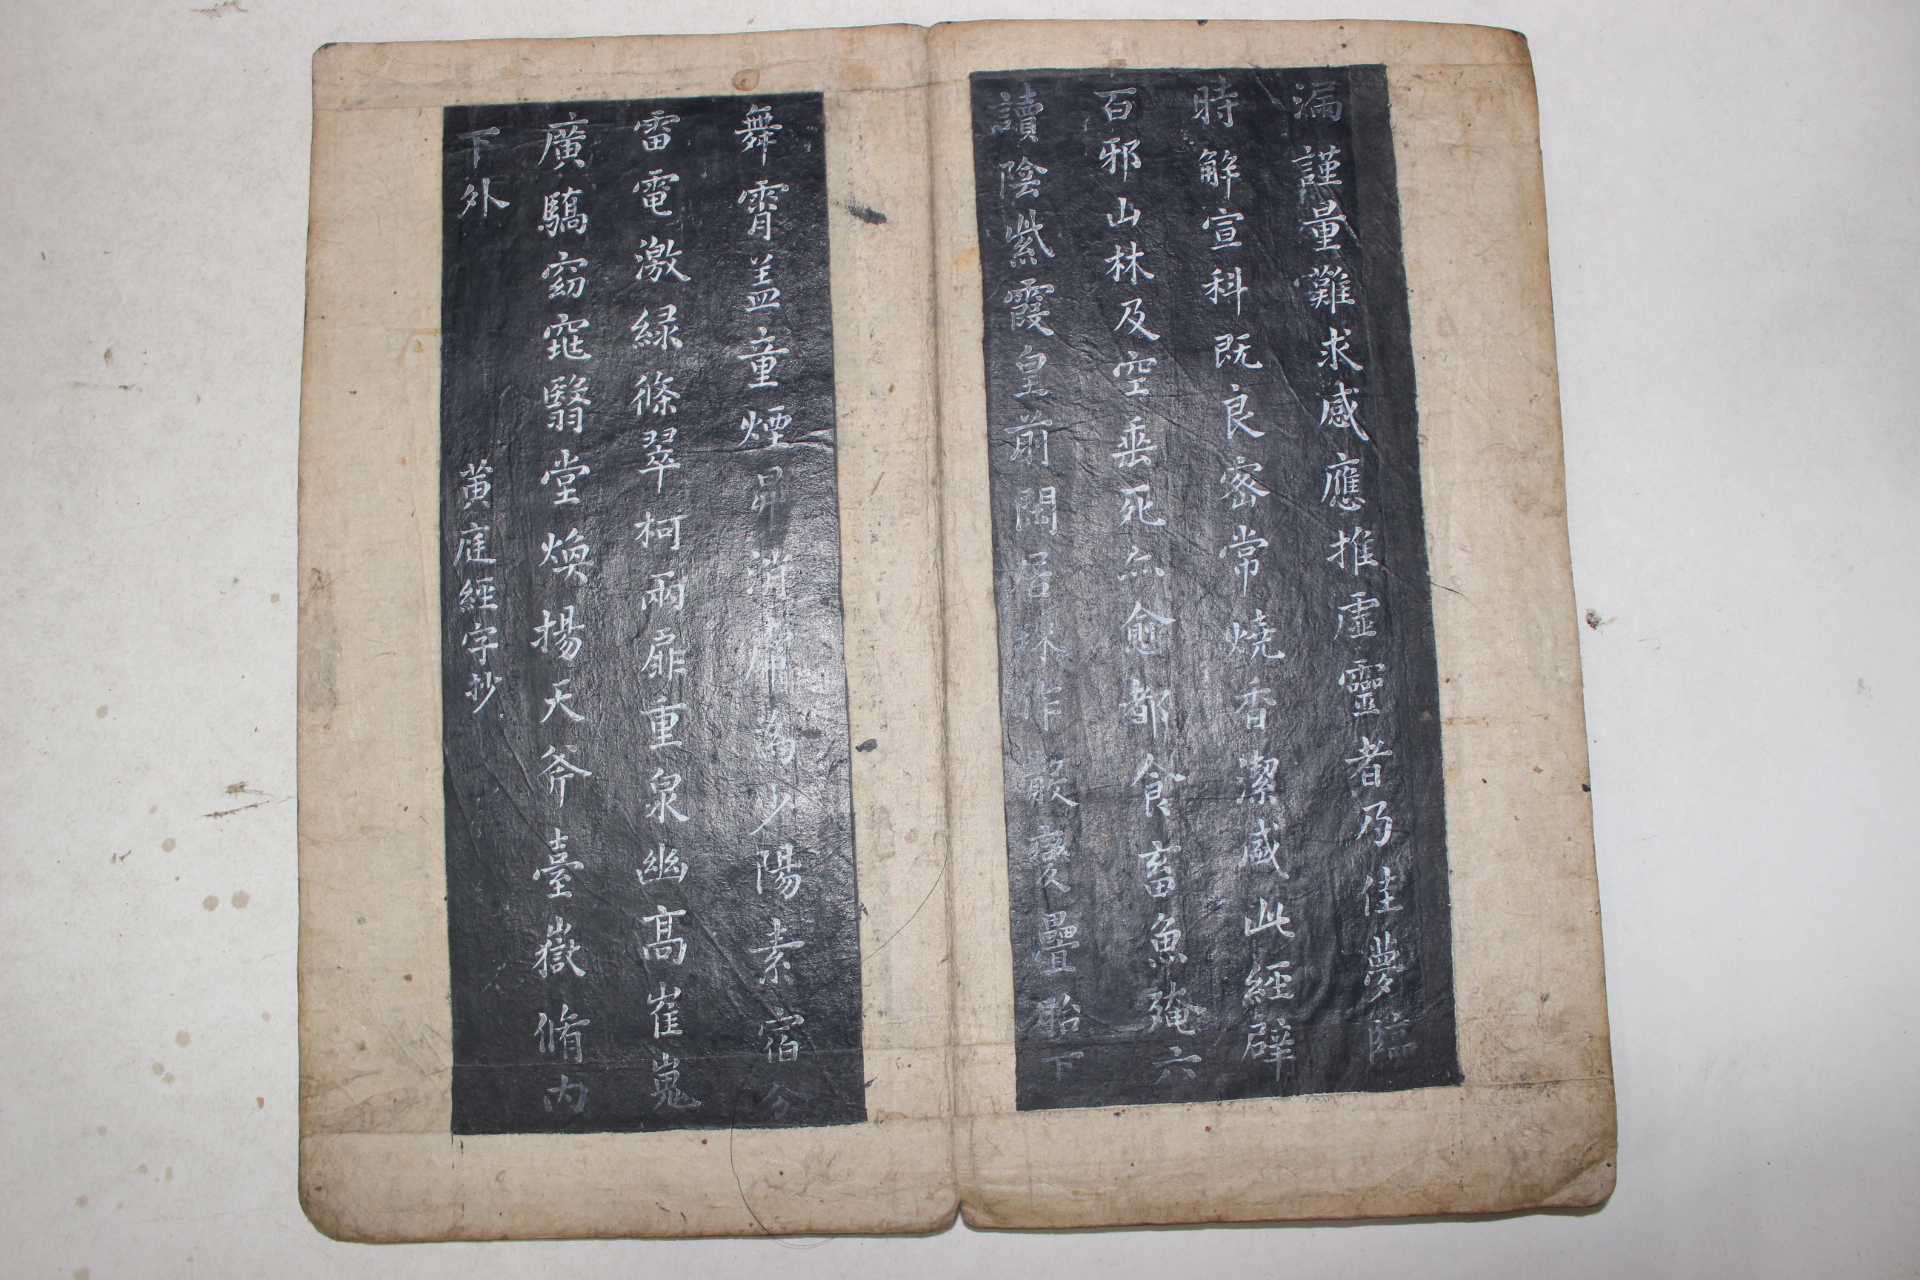 漏謹量難求感應推虛靈者乃佳夢臨
時解宣科既良密常燒香潔感此經辟
百邪山林及空垂死亦愈都食畜魚殗六
讀陰紫霞皇前閑居珠作散變疊胎下
舞霄盖童煙昇消席為少陽素宿分
雷電激緑條翠柯兩扉重泉幽高崔嵬
廣驕窈窕翳堂煥揚天斧臺嶽脩內
下外
黄庭經字抄